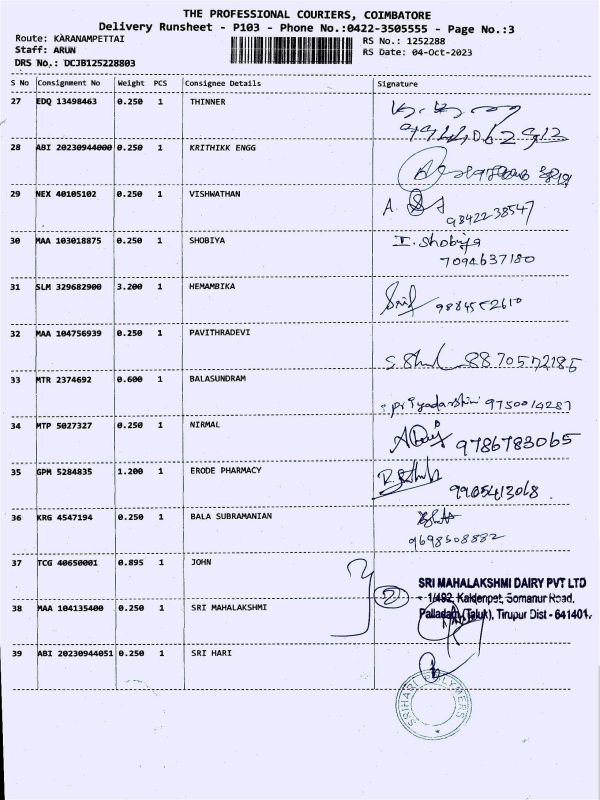 THE PROFESSIONAL COURIERS, COIMBATORE
Delivery Runsheet - P103 - Phone No.:0422-3505555 - Page No.:3
Route: KARANAMPETTAI
RS No.: 1252288
Staff: ARUN
RS Date: 04-Oct-2023
DRS No.: DCJB125228803
S No Consignment No Weight PCS Consignee Details Signature
27 EDQ 13498463 0.250 1 THINNER
28 ABI 20230944000 0.250 1 KRITHIKK ENGG
29 NEX 40105102 0.250 1 VISHWATHAN A. 9842238547
30 MAA 103018875 0.250 1 SHOBIYA I. Shobiya
7094637180
31 SLM 329682900 3.200 1 HEMAMBIKA 9884552610
32 MAA 104756939 0.250 1 PAVITHRADEVI 8870572185
33 MTR 2374692 0.600 1 BALASUNDRAM priyadarshini 9750014287
34 MTP 5027327 0.250 1 NIRMAL 9786783065
35 GPM 5284835 1.200 1 ERODE PHARMACY 9965413068
36 KRG 4547194 0.250 1 BALA SUBRAMANIAN
9698508882
37 TCG 40650001 0.895 1 JOHN
SRI MAHALAKSHMI DAIRY PVT LTD
2 1/492, Kaldenpet, Somanur Road,
38 MAA 104135400 0.250 1 SRI MAHALAKSHMI Palladam (Taluk), Tirupur Dist - 641401.
39 ABI 20230944051 0.250 1 SRI HARI
SRIHARI POLYMERS